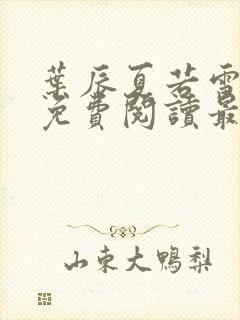 葉辰夏若雪
免費閱讀最
山东大鴨梨